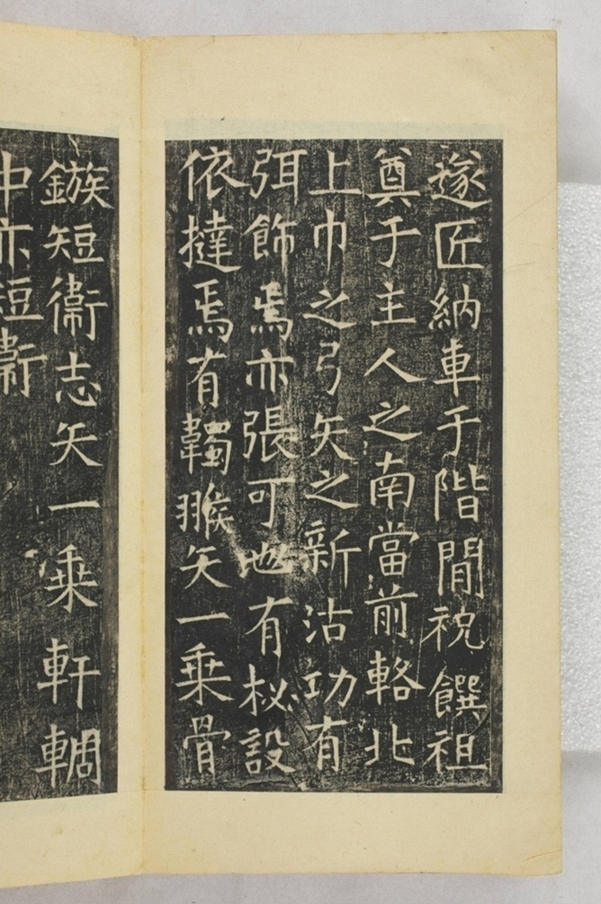 遂匠納車于階間祝饌祖
奠于主人之南當前輅北
上巾之弓矢之新沽功有
弭飾焉亦張可也有柲設
依撻焉有韣猴矢一乗骨
鏃短衞志矢一乗軒輖
中亦短衞